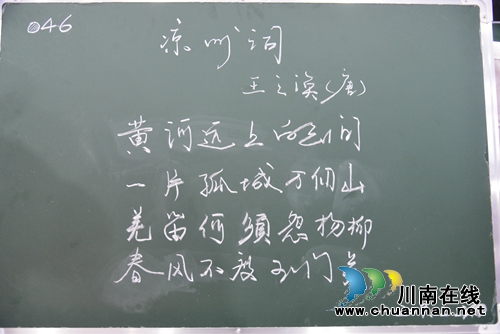 046
凉州词
王之涣(唐)
黄河远上白云间
一片孤城万仞山
羌笛何须怨杨柳
春风不度玉门关
川南在线
www.chuannan.net